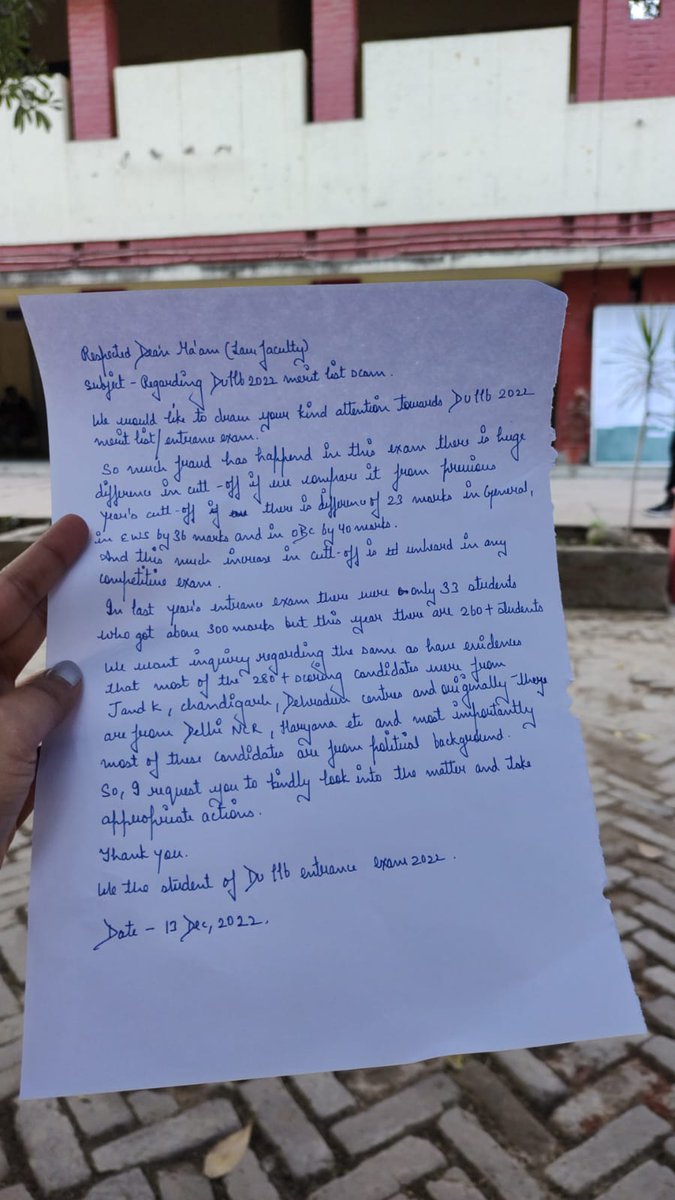 Respected Dean Ma'am (Law faculty)
Subject - Regarding Du llb 2022 merit list scam.
We would like to draw your kind attention towards Du llb 2022
merit list/entrance exam.
So much fraud has happend in this exam there is huge
difference in cutt-off if we compare it from previous
year's cutt-off if there is difference of 23 marks in General,
in EWS by 36 marks and in OBC by 40 marks.
And this much increase in cutt-off is unheard in any
competitive exam.
In last year's entrance exam there were only 33 students
who got above 300 marks but this year there are 260+ students
We want inquiry regarding the same as have evidences
that most of the 280+ scoring candidates were from
J and K, chandigarh, Dehradun centres and originally they
are from Delhi NCR, Haryana etc and most importantly
most of these candidates are from political background.
So, I request you to kindly look into the matter and take
appropriate actions.
Thank you.
We the student of Du llb entrance exam 2022.
Date - 13 Dec, 2022.